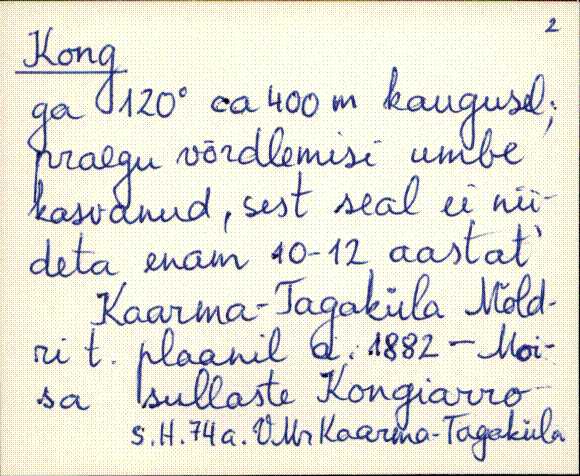 2
Kong
ga 120° ca 400 m kaugusel;
praegu võrdlemisi umbe
kasvanud, sest seal ei nii-
deta enam 10-12 aastat
Kaarma-Tagaküla Möld-
ri t. plaanil a. 1882 - Moi-
sa sullaste Kongiarro
S.H. 74 a. V.Mr Kaarma-Tagaküla